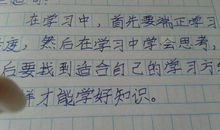 在学习中，首先要端正学习
度，然后在学习中学会思考，
后要找到适合自己的学习方
样才能学好知识。